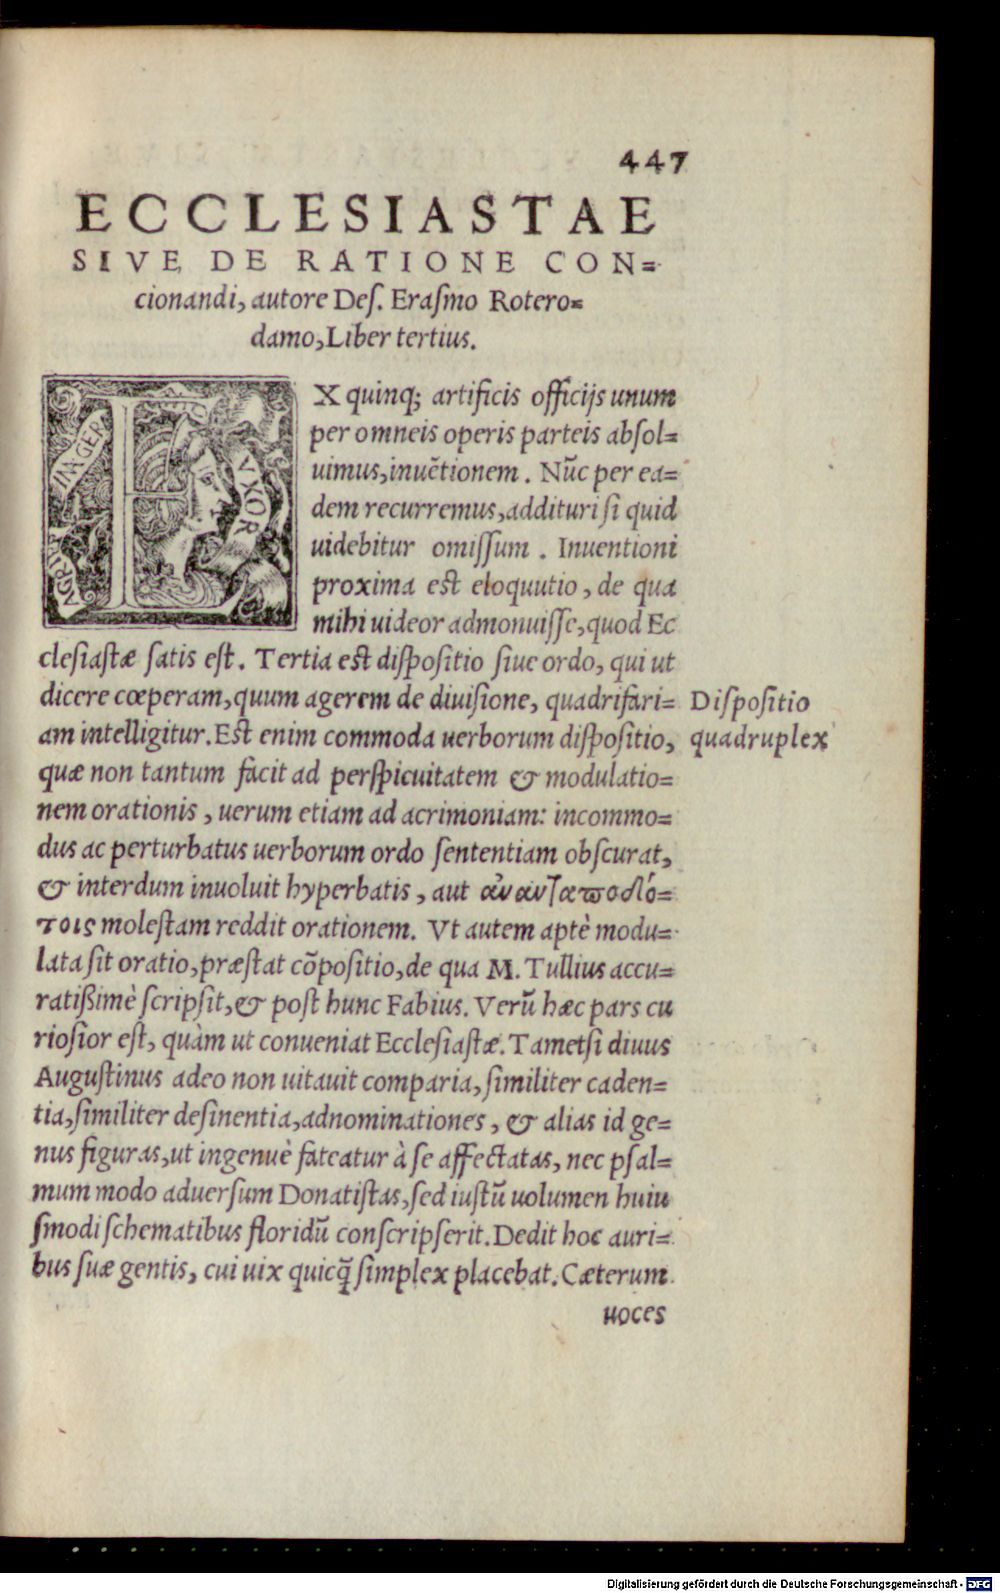 447
ECCLESIASTAE
SIVE DE RATIONE CON=
cionandi, autore Des. Erasmo Rotero=
damo, Liber tertius.
EX quinq; artificis officijs unum
per omneis operis parteis absol=
uimus, inuẽtionem. Nũc per ea=
dem recurremus, addituri si quid
uidebitur omissum. Inuentioni
proxima est eloquutio, de qua
mihi uideor admonuisse, quod Ec
clesiastæ satis est. Tertia est dispositio siue ordo, qui ut
dicere cœperam, quum agerem de diuisione, quadrifari=
am intelligitur. Est enim commoda uerborum dispositio,
quæ non tantum facit ad perspicuitatem & modulatio=
nem orationis, uerum etiam ad acrimoniam: incommo=
dus ac perturbatus uerborum ordo sententiam obscurat,
& interdum inuoluit hyperbatis, aut ἀνανταποδό=
τοις molestam reddit orationem. Vt autem aptè modu=
lata sit oratio, præstat cõpositio, de qua M. Tullius accu=
ratißimè scripsit, & post hunc Fabius. Verũ hæc pars cu
riosior est, quàm ut conueniat Ecclesiastæ. Tametsi diuus
Augustinus adeo non uitauit comparia, similiter caden=
tia, similiter desinentia, adnominationes, & alias id ge=
nus figuras, ut ingenuè fateatur à se affectatas, nec psal=
mum modo aduersum Donatistas, sed iustũ uolumen huiu
smodi schematibus floridũ conscripserit. Dedit hoc auri=
bus suæ gentis, cui uix quicq̃ simplex placebat. Cæterum
uoces
Dispositio
quadruplex
VXOR
Digitalisierung gefördert durch die Deutsche Forschungsgemeinschaft - DFG